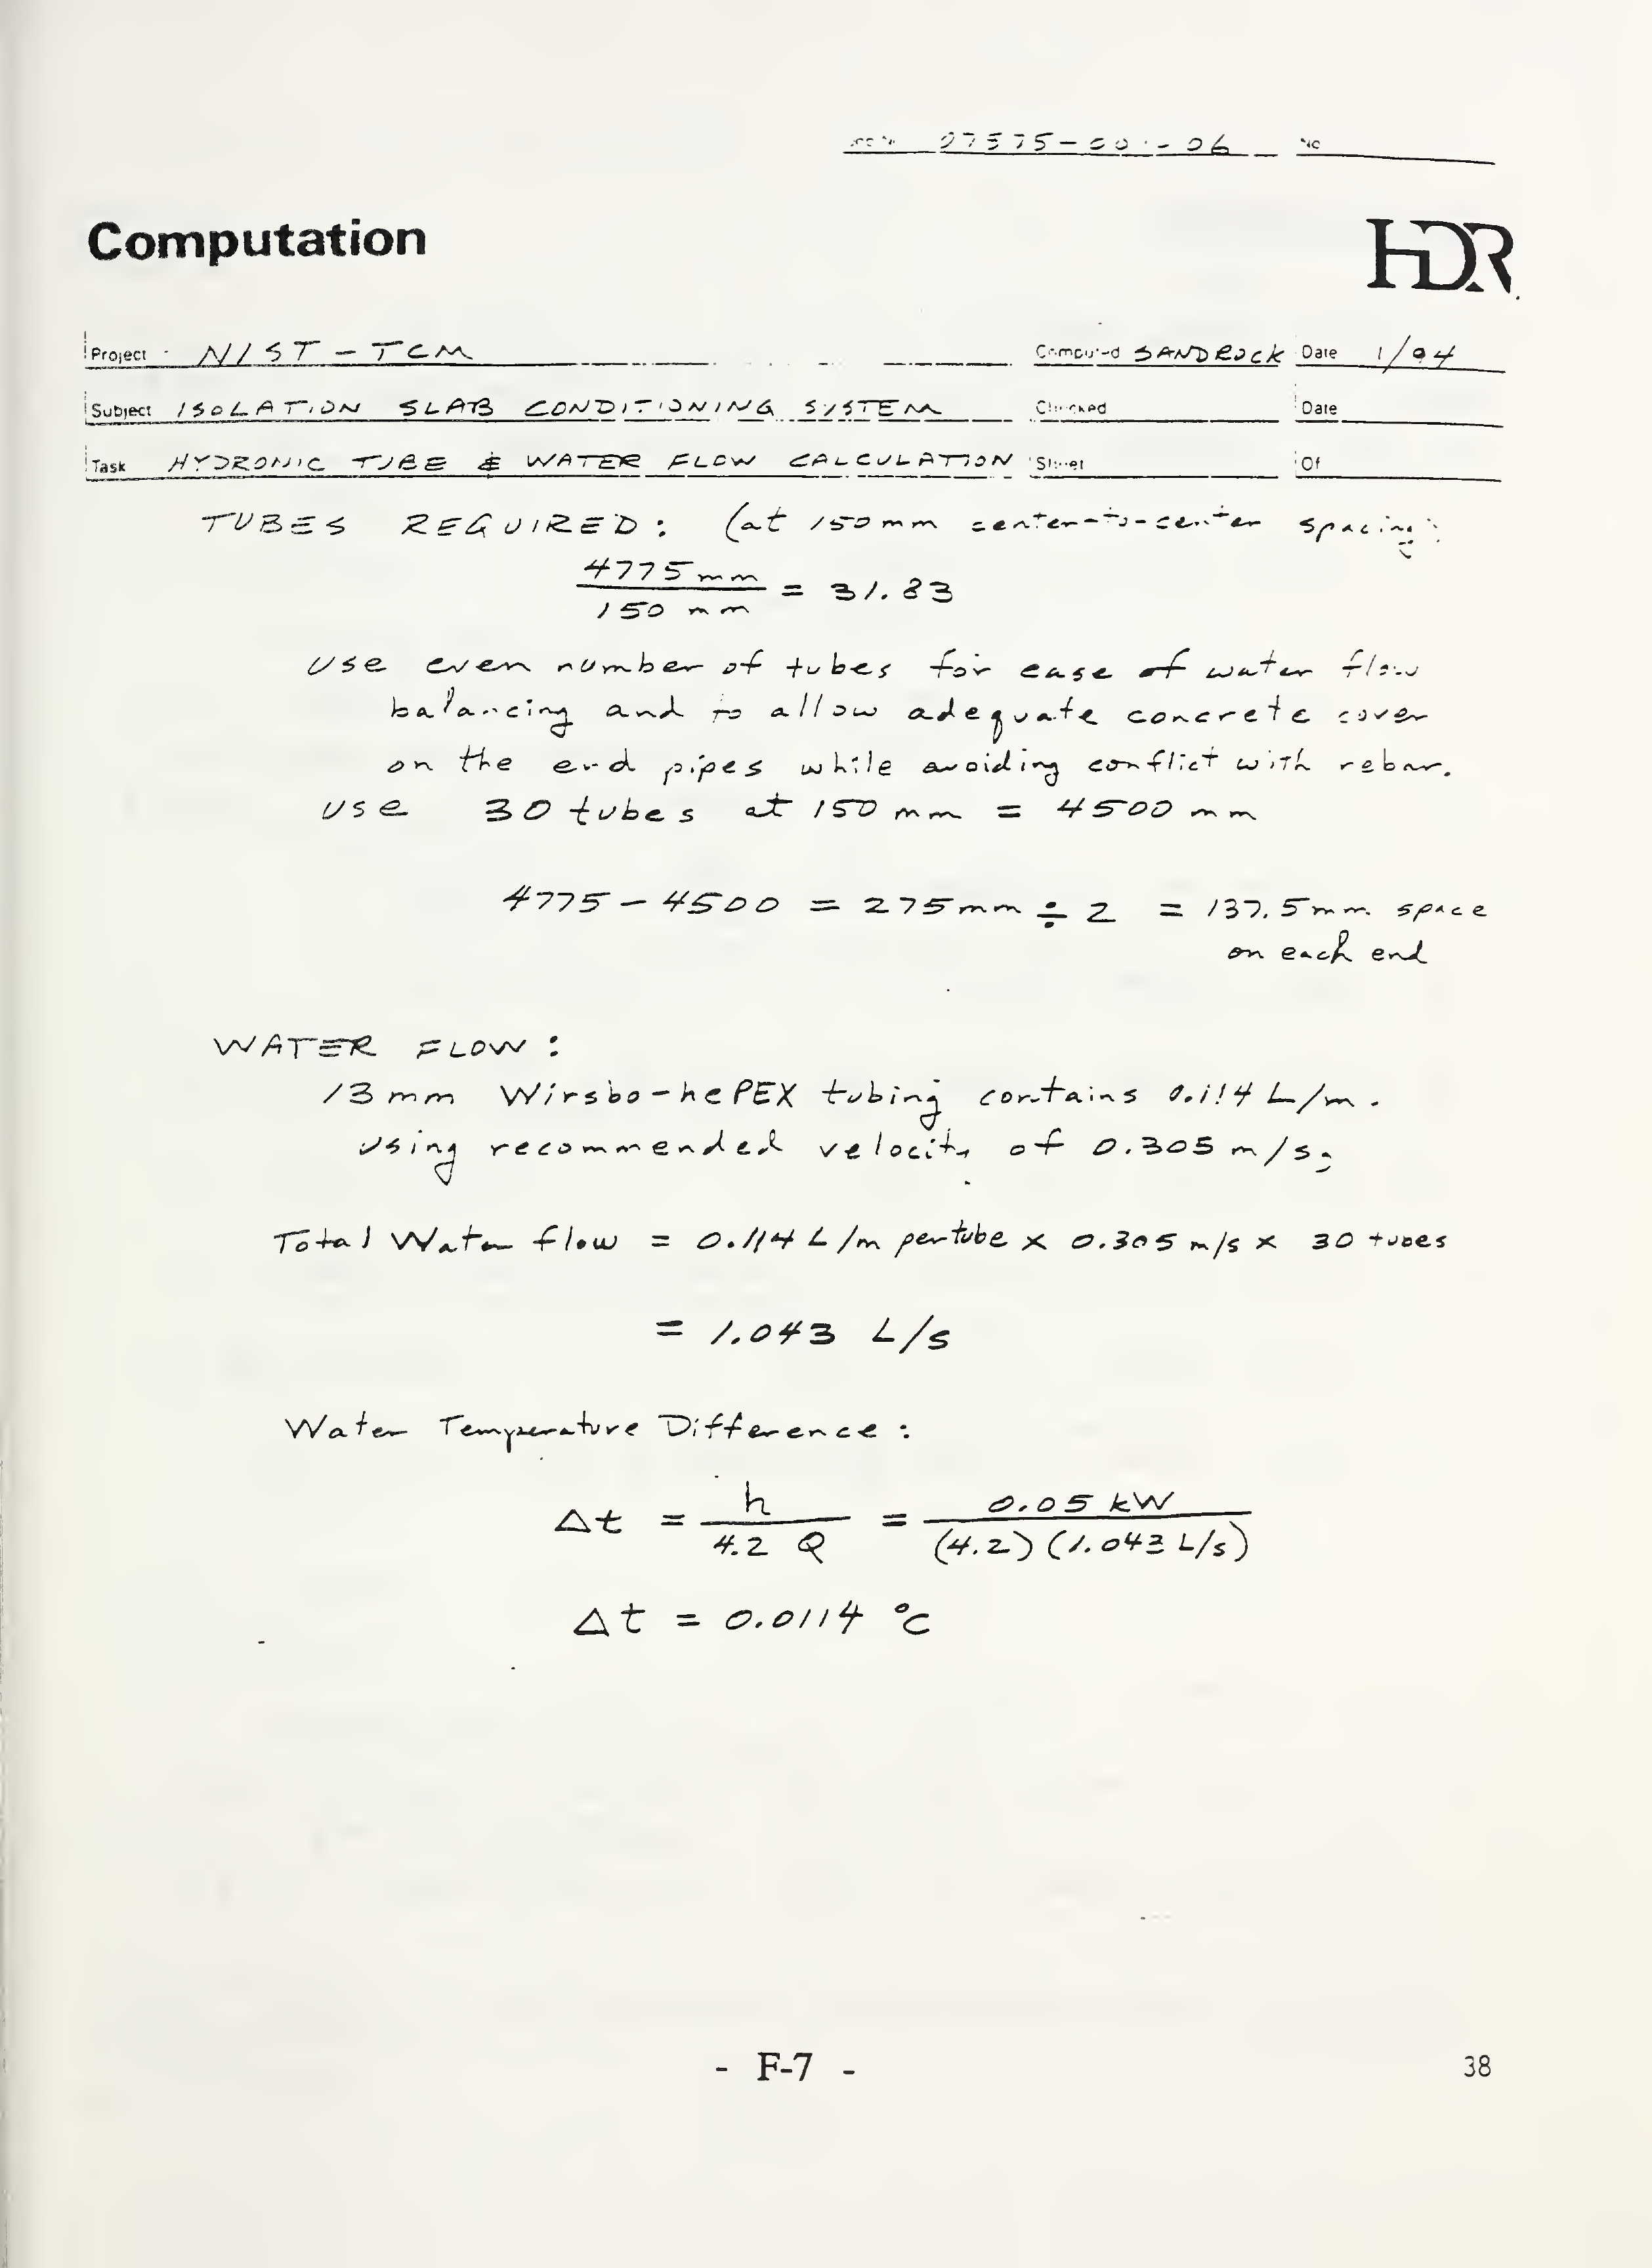 07575-001-06 No
Computation
HDR
Project NIST - TCM Computed SANDROCK Date 1/94
Subject ISOLATION SLAB CONDITIONING SYSTEM Checked Date
Task HYDRONIC TUBE & WATER FLOW CALCULATION Sheet Of
TUBES REQUIRED: (at 150mm center-to-center spacing)
4775 mm
= 31.83
150 mm
Use even number of tubes for ease of water flow
balancing and to allow adequate concrete cover
on the end pipes while avoiding conflict with rebar.
Use 30 tubes at 150 mm = 4500 mm
4775 - 4500 = 275mm ÷ 2 = 137.5mm space
on each end
WATER FLOW:
13 mm Wirsbo-hePEX tubing contains 0.114 L/m.
Using recommended velocity of 0.305 m/s,
Total Water flow = 0.114 L/m per tube x 0.305 m/s x 30 tubes
= 1.043 L/s
Water Temperature Difference:
Δt = h / 4.2 Q = 0.05 kW / (4.2)(1.043 L/s)
Δt = 0.0114 °C
- F-7 - 38